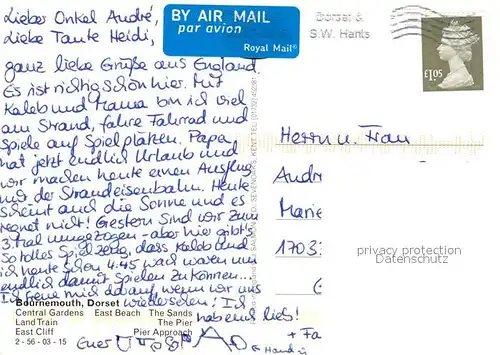 Lieber Onkel André,
Liebe Tante Heidi,
ganz liebe Grüße aus England.
Es ist richtig schön hier. Mit
Kaleb und Mama bin ich viel
am Strand, fahre Fahrrad und
spiele auf Spielplätzen. Papa
hat jetzt endlich Urlaub und
wir machen heute einen Ausflug
mit der Strandeisenbahn. Heute
scheint auch die Sonne und es
regnet nicht! Gestern sind wir zum
3. mal umgezogen - aber hier gibt's
so tolles Spielzeug, dass Kaleb und
ich heute schon 4.45 wach waren um
endlich damit spielen zu können...
Ich freue mich darauf, wenn wir uns
wiedersehen! Ich
hab euch lieb!
Euer
Bournemouth, Dorset
Central Gardens East Beach The Sands
Land Train The Pier
East Cliff Pier Approach
2 - 56 - 03 - 15
BY AIR MAIL
par avion
Royal Mail®
Dorset &
S.W. Hants
£1.05
Herrn u. Frau
Andr
Marie
1703
+ Fa
privacy protection
Datenschutz